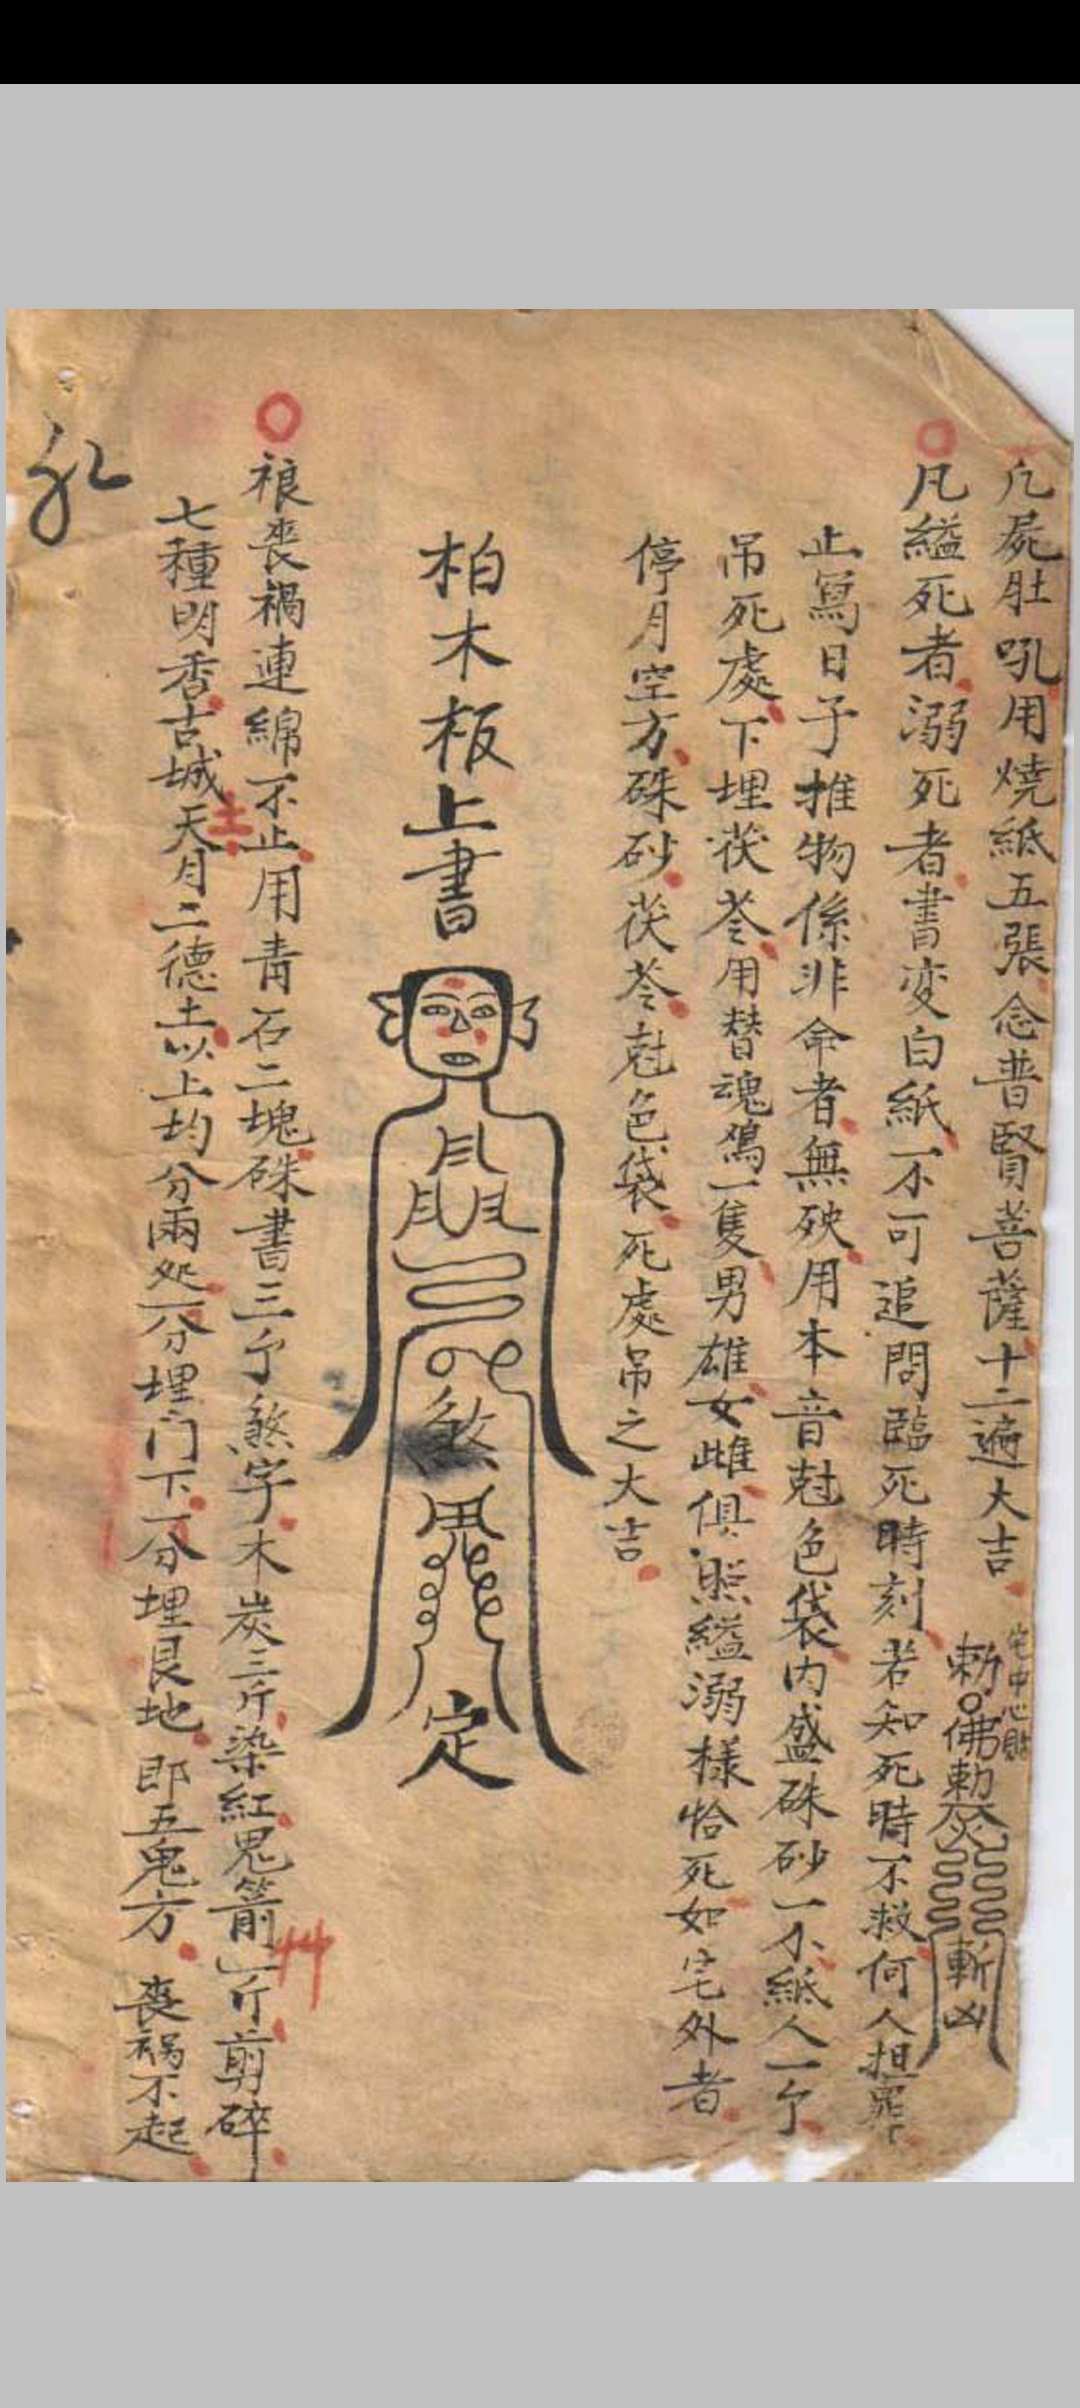 凡屍肚吼用燒紙五張念普賢菩薩十二遍大吉
宅中心貼
勅佛勅
斬凶
凡縊死者溺死者書变白紙一不可追問臨死時刻若知死時不救何人担罪
止寫日子推物係非命者無殃用本音尅色袋内盛硃砂一个紙人一个
吊死處下埋茯苓用替魂鳮一隻男雄女雌俱照縊溺樣恰死如宅外者
停月空方硃砂茯苓尅色袋死處吊之大吉
柏木板上書
煞鬼
定
禳喪禍連綿不止用青石二塊硃書三个煞字木炭三斤染紅鬼箭一斤剪碎
七種明香古城土天月二德土以上均分兩処一分埋门下一分埋艮地即五鬼方 喪祸不起